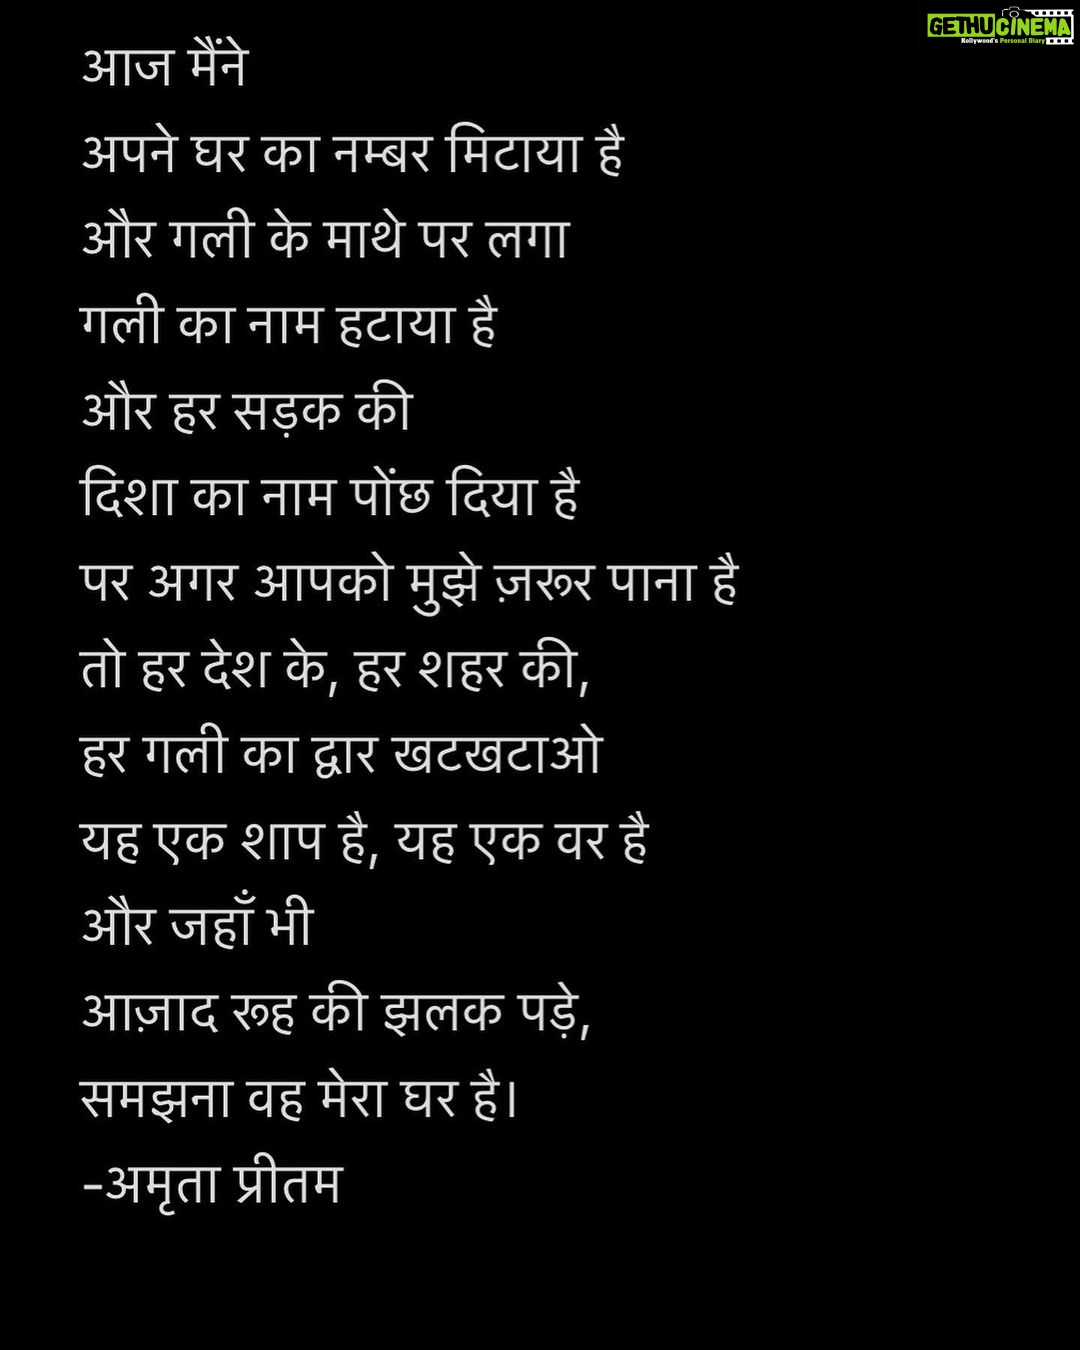 GETHU CINEMA
Kollywood's Personal Diary
आज मैंने
अपने घर का नम्बर मिटाया है
और गली के माथे पर लगा
गली का नाम हटाया है
और हर सड़क की
दिशा का नाम पोंछ दिया है
पर अगर आपको मुझे ज़रूर पाना है
तो हर देश के, हर शहर की,
हर गली का द्वार खटखटाओ
यह एक शाप है, यह एक वर है
और जहाँ भी
आज़ाद रूह की झलक पड़े,
समझना वह मेरा घर है।
-अमृता प्रीतम